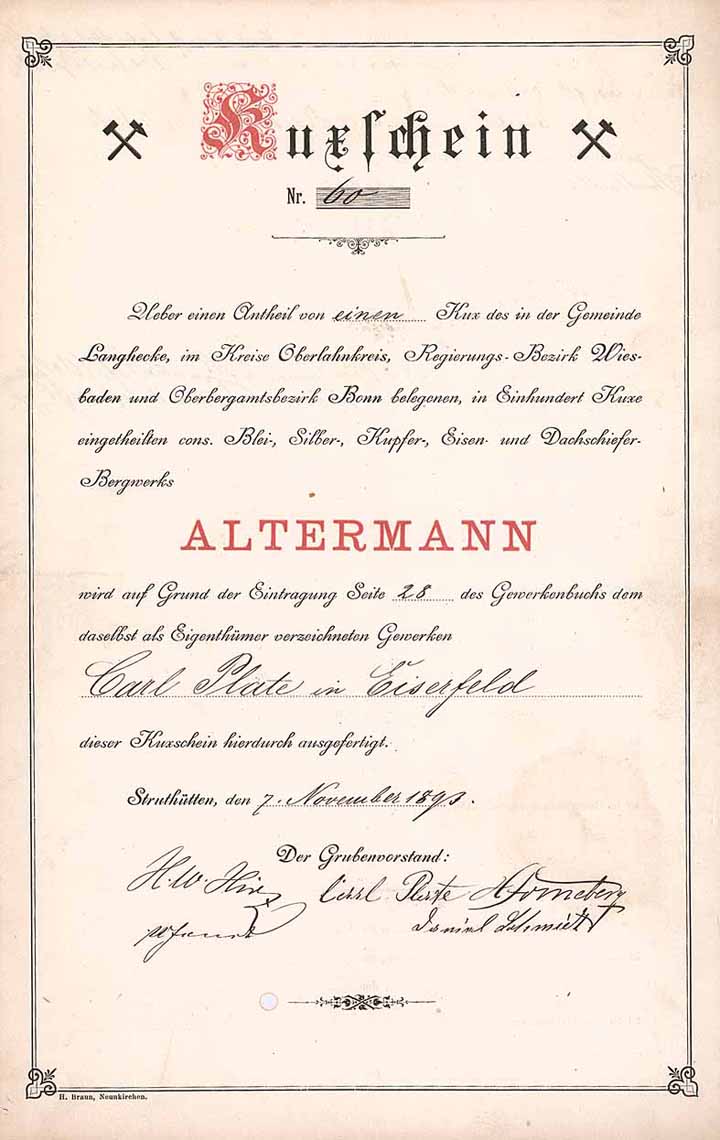 Kuxschein
Nr. 60
Ueber einen Antheil von einen Kux des in der Gemeinde
Langhecke, im Kreise Oberlahnkreis, Regierungs-Bezirk Wies-
baden und Oberbergamtsbezirk Bonn belegenen, in Einhundert Kuxe
eingetheilten cons. Blei-, Silber-, Kupfer-, Eisen- und Dachschiefer-
Bergwerks
ALTERMANN
wird auf Grund der Eintragung Seite 28 des Gewerkenbuchs dem
daselbst als Eigenthümer verzeichneten Gewerken
Carl Plate in Eiserfeld
dieser Kuxschein hierdurch ausgefertigt.
Struthütten, den 7. November 1893.
Der Grubenvorstand:
H. W. Carl Plate
Daniel Schmidt
H. Braun, Neunkirchen.